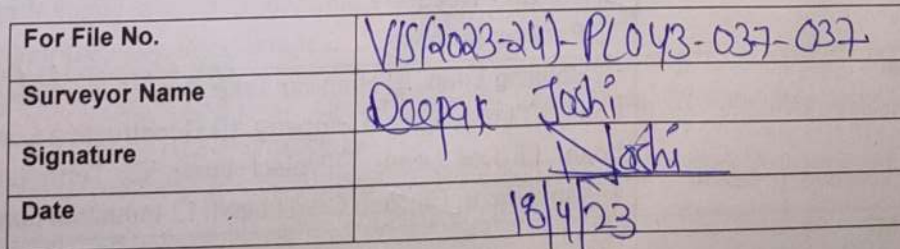 For File No. VIS(2023-24)-PL043-037-037
Surveyor Name Deepak Joshi
Signature DJoshi
Date 18/4/23